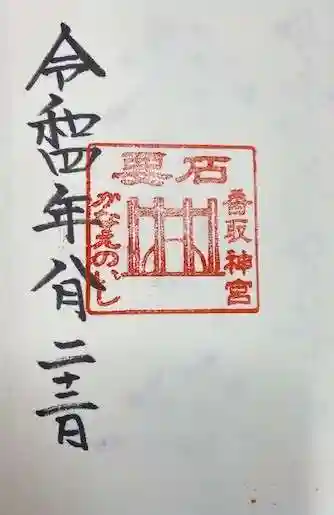 香取神宮
要石
かなめいし
令和四年八月二十三日